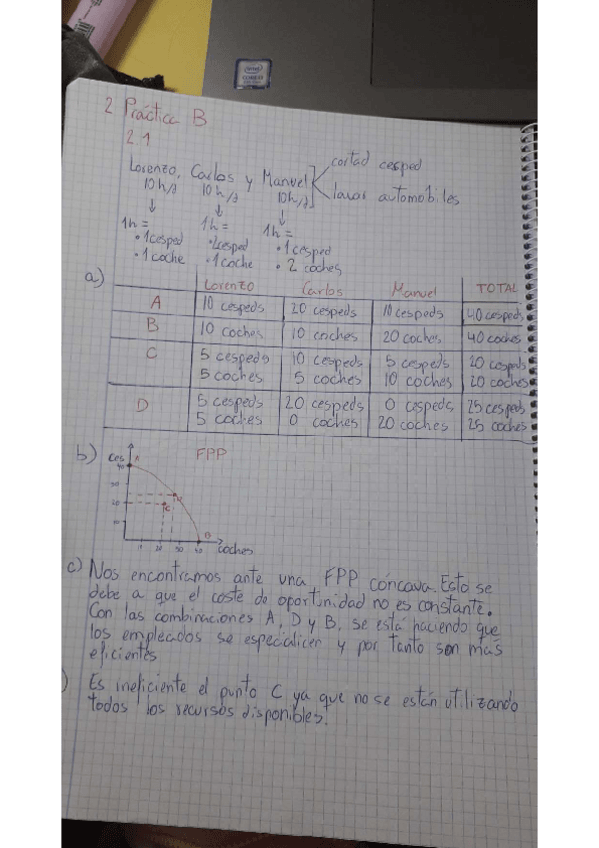 2 Práctica B
2.1
Lorenzo, Carlos y Manuel cortad cesped
10h/d 10h/d 10h/d lavar automobiles
1h = 1h = 1h =
• 1 cesped • 2cesped • 1 cesped
• 1 coche • 1 coche • 2 coches
a) Lorenzo Carlos Manuel TOTAL
A 10 cespeds 20 cespeds 10 cespeds 40 cespeds
B 10 coches 10 coches 20 coches 40 coches
C 5 cespeds 10 cespeds 5 cespeds 20 cespeds
5 coches 5 coches 10 coches 20 coches
D 5 cespeds 20 cespeds 0 cespeds 25 cespeds
5 coches 0 coches 20 coches 25 coches
b) ces FPP
40 A
30
20 C
10 B
30 40 coches
c) Nos encontramos ante una FPP cóncava. Esto se
debe a que el coste de oportunidad no es constante.
Con las combinaciones A, D y B, se está haciendo que
los empleados se especialicen y por tanto son más
eficientes
) Es ineficiente el punto C ya que no se están utilizando
todos los recursos disponibles.
intel